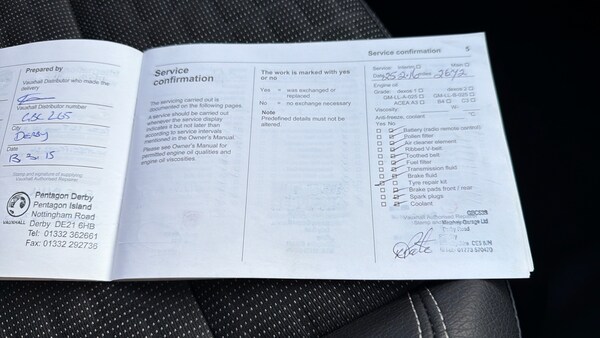 Prepared by
Vauxhall Distributor who made the
delivery
Vauxhall Distributor number
City
DERBY
Date
Stamp and signature of supplying
Vauxhall Authorised Repairer
VAUXHALL
Pentagon Derby
Pentagon Island
Nottingham Road
Derby DE21 6HB
Tel: 01332 362661
Fax: 01332 292736
Service
confirmation
The servicing carried out is
documented on the following pages.
A service should be carried out
whenever the service display
indicates it but not later than
according to service intervals
mentioned in the Owner's Manual.
Please see Owner's Manual for
permitted engine oil qualities and
engine oil viscosities.
The work is marked with yes
or no
Yes = was exchanged or
replaced
No = no exchange necessary
Note
Predefined details must not be
altered.
Service confirmation 5
Service: Interim Main
Date
Engine oil
Grade: dexos 1 dexos 2
GM-LL-A-025 GM-LL-B-025
ACEA A3 B4 C3
Viscosity: W-
Anti-freeze, coolant
Yes No
Battery (radio remote control)
Pollen filter
Air cleaner element
Ribbed V-belt
Toothed belt
Fuel filter
Transmission fluid
Brake fluid
Tyre repair kit
Brake pads front / rear
Spark plugs
Coolant
Vauxhall Authorised Repairer
Garage Ltd